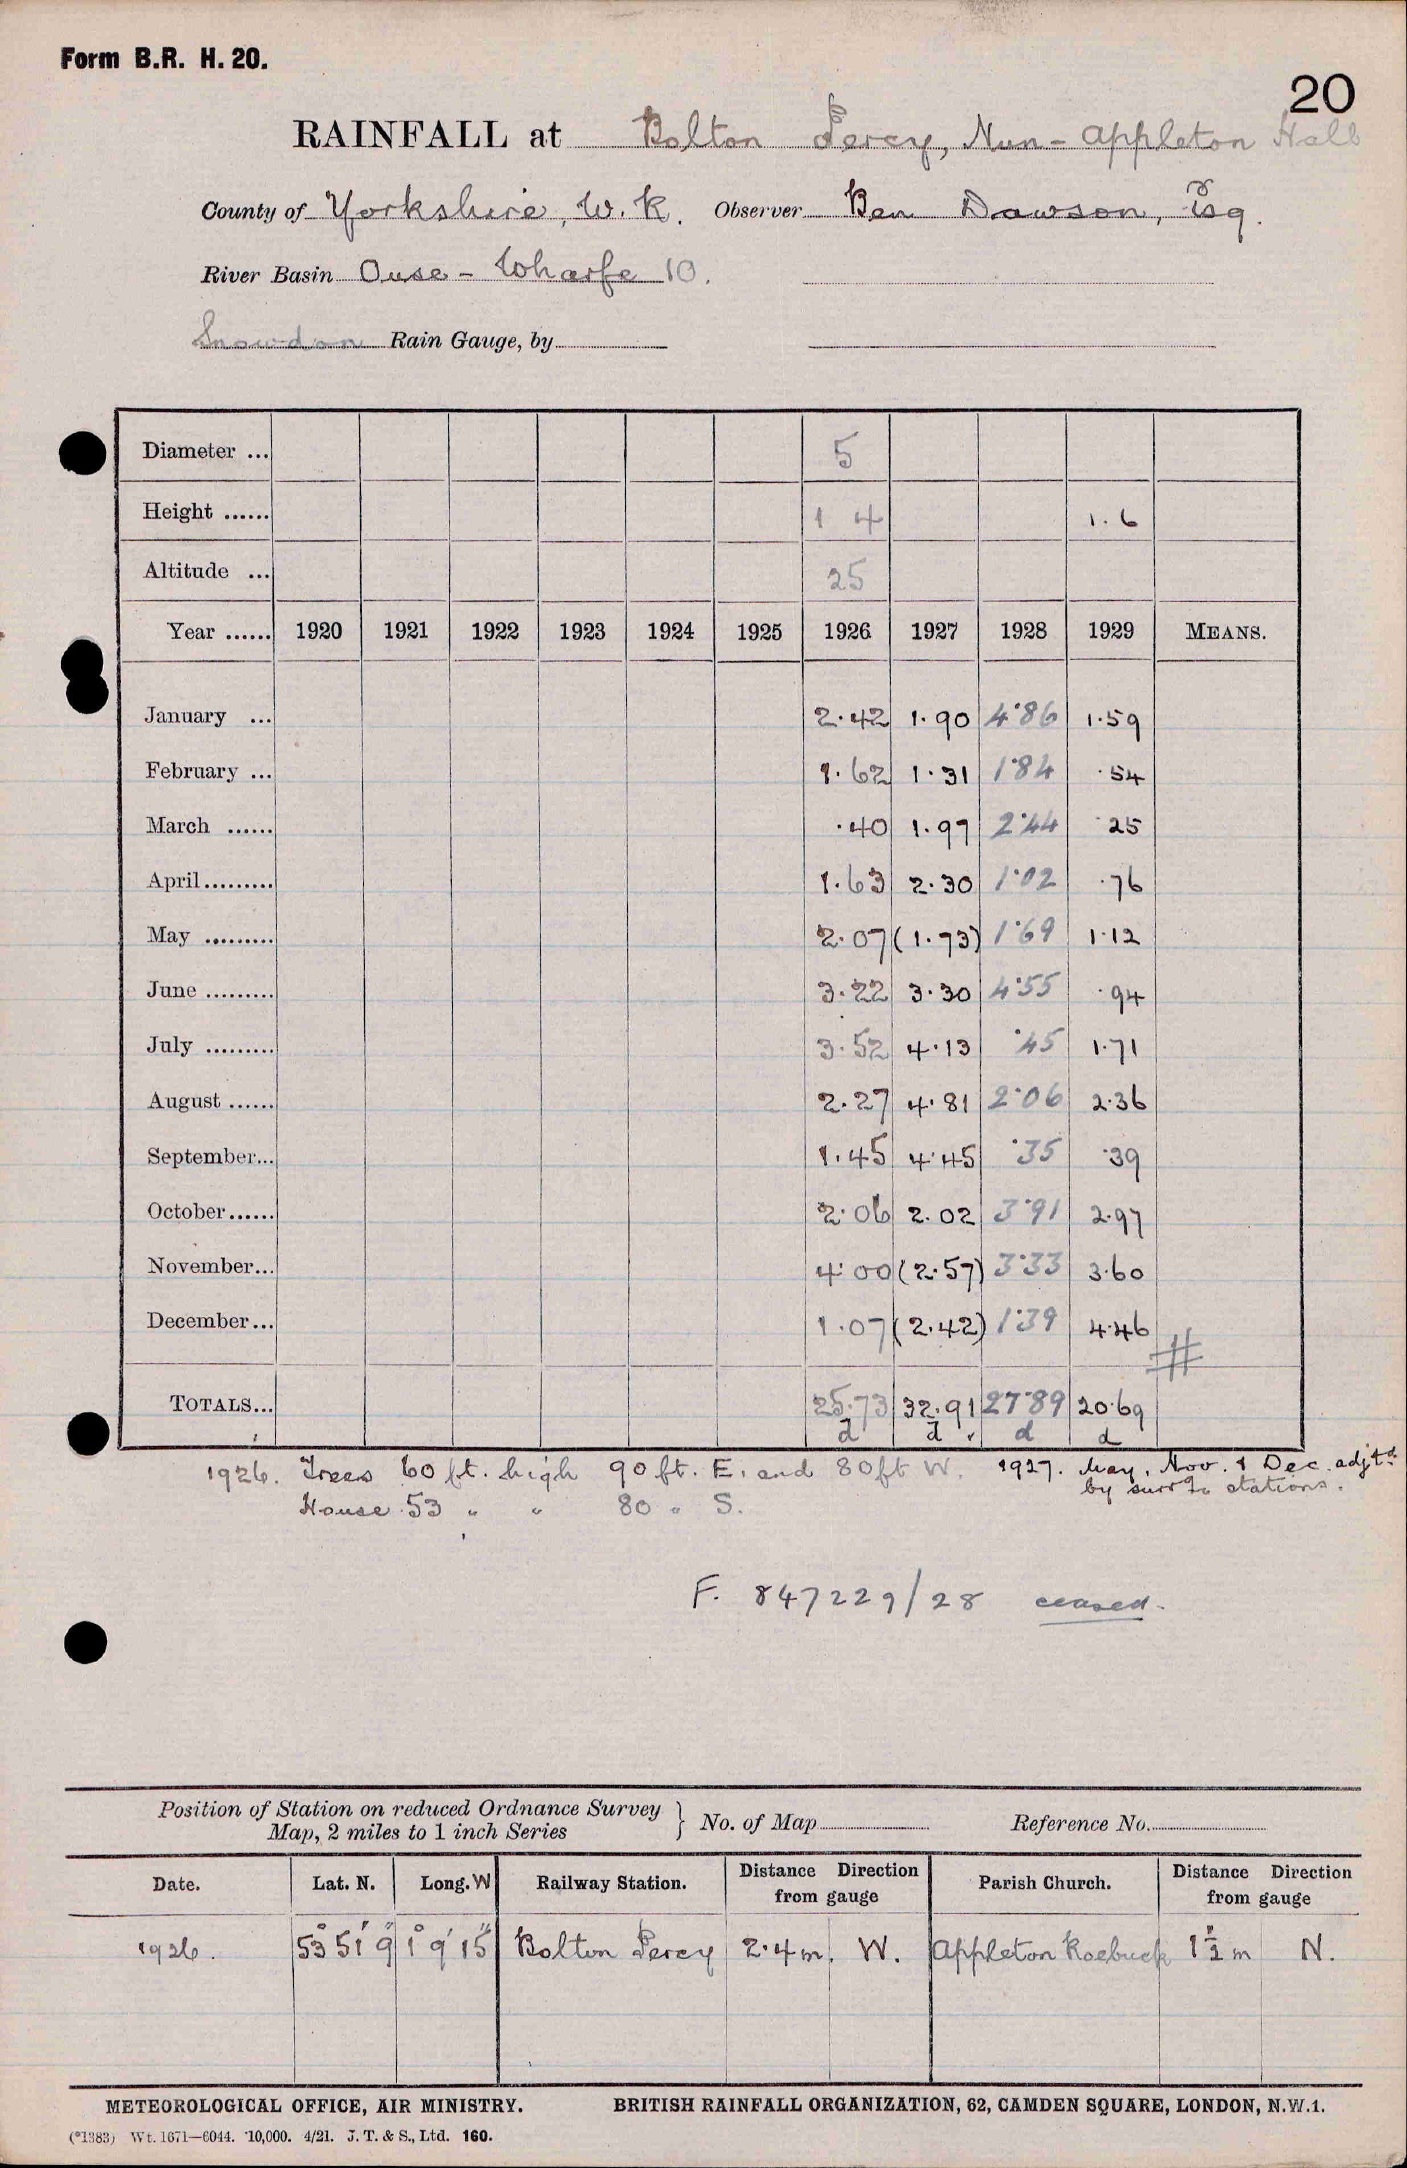 Form B.R. H. 20.
20
RAINFALL at Bolton Percy, Nun-Appleton Hall
County of Yorkshire, W.R. Observer Ben Dawson, Esq.
River Basin Ouse - Wharfe 10.
Snowdon Rain Gauge, by
Diameter ... 5
Height ...... 1 4 1.6
Altitude ... 25
Year ...... 1920 1921 1922 1923 1924 1925 1926 1927 1928 1929 MEANS.
January ... 2.42 1.90 4.86 1.59
February ... 1.62 1.31 1.84 .54
March ...... .40 1.97 2.44 .25
April......... 1.63 2.30 1.02 .76
May ......... 2.07 (1.73) 1.69 1.12
June ......... 3.22 3.30 4.55 .94
July ......... 3.52 4.13 .45 1.71
August ...... 2.27 4.81 2.06 2.36
September... 1.45 4.45 .35 .39
October...... 2.06 2.02 3.91 2.97
November... 4.00 (2.57) 3.33 3.60
December... 1.07 (2.42) 1.39 4.46
#
TOTALS... 25.73 32.91 27.89 20.69
d d d d
1926. Trees 60 ft. high 90 ft. E. and 80 ft W. 1927. May, Nov. & Dec. adjtd.
by surrdg stations.
House 53 " " 80 " S.
F. 847229/28 ceased.
Position of Station on reduced Ordnance Survey
Map, 2 miles to 1 inch Series } No. of Map Reference No.
Date. Lat. N. Long. W Railway Station. Distance Direction from gauge Parish Church. Distance Direction from gauge
1926. 53° 51' 9" 1° 9' 15" Bolton Percy 2.4 m. W. Appleton Roebuck 1½ m N.
METEOROLOGICAL OFFICE, AIR MINISTRY. BRITISH RAINFALL ORGANIZATION, 62, CAMDEN SQUARE, LONDON, N.W.1.
(*1383) Wt. 1671—6044. 10,000. 4/21. J. T. & S., Ltd. 160.